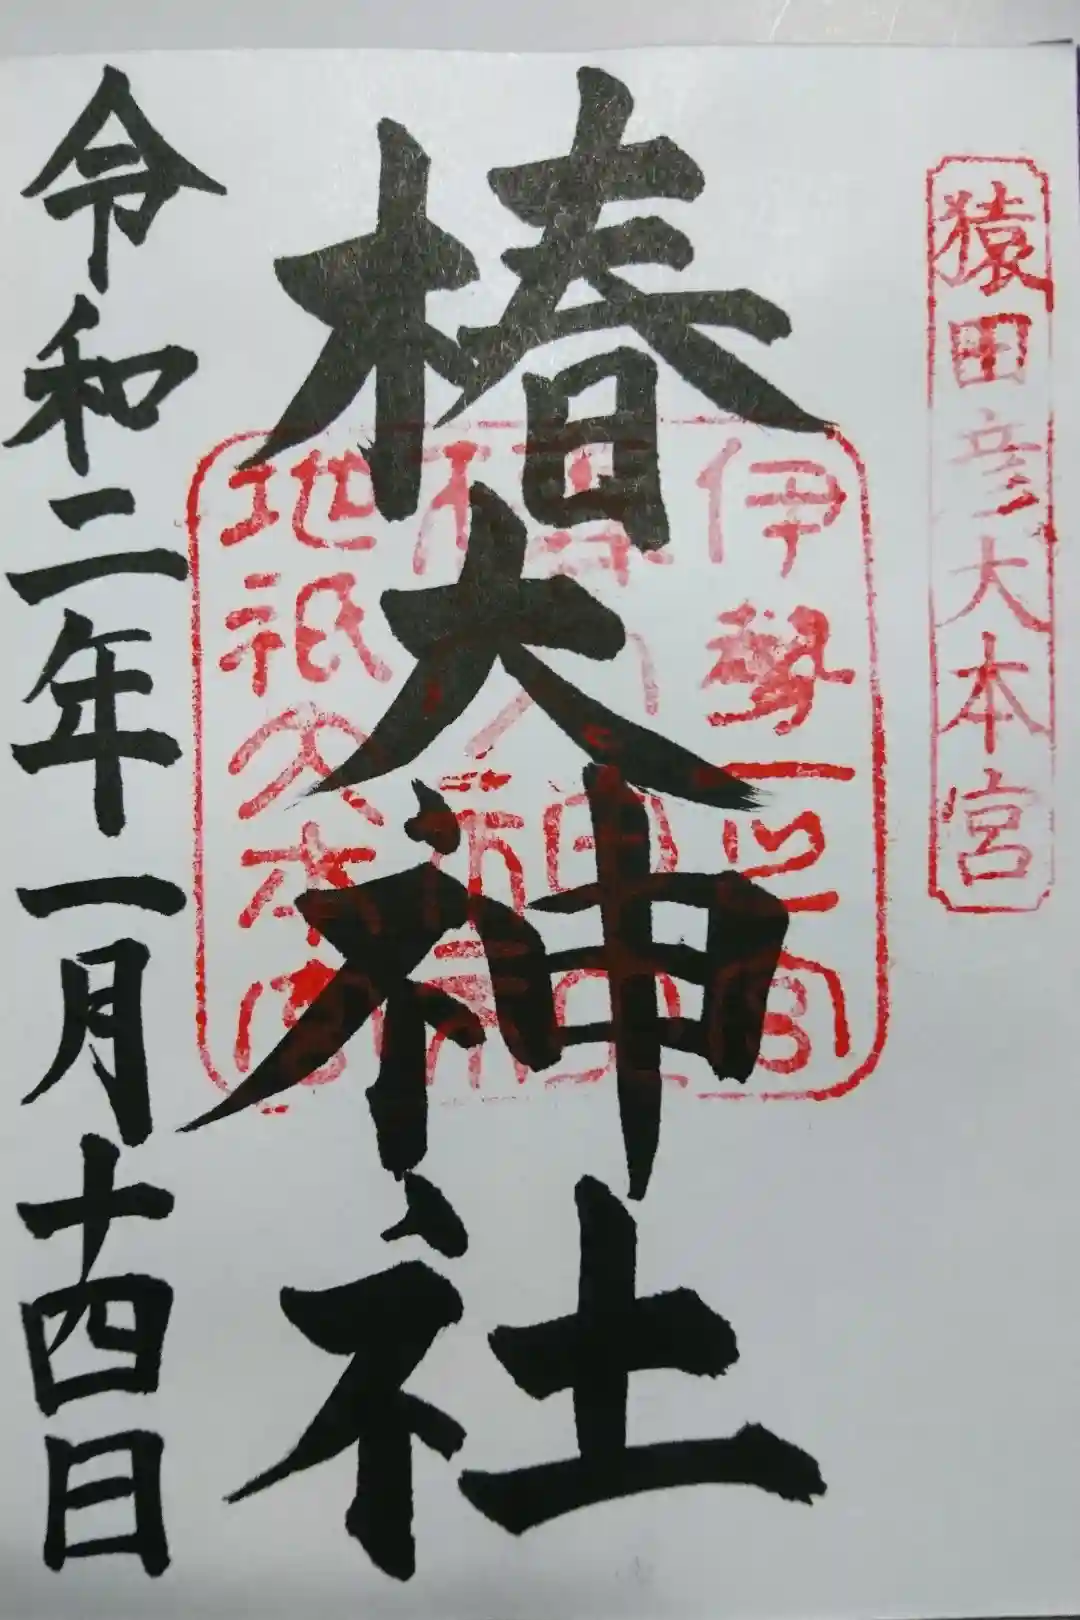 猿田彦大本宮
伊勢一之宮
椿大神社
地祇大本宮
令和二年一月十四日